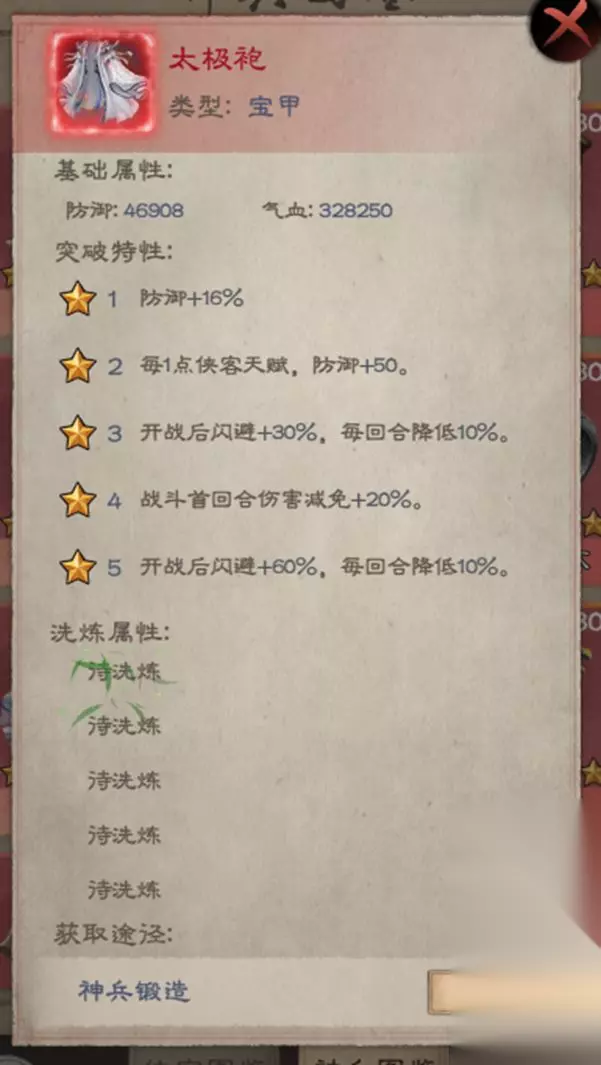 太极袍
类型: 宝甲
80
基础属性:
防御: 46908 气血: 328250
突破特性:
1 防御+16%
2 每1点侠客天赋，防御+50。
80
3 开战后闪避+30%，每回合降低10%。
4 战斗首回合伤害减免+20%。
5 开战后闪避+60%，每回合降低10%。
洗炼属性:
80
待洗炼
待洗炼
待洗炼
待洗炼
待洗炼
获取途径:
神兵锻造